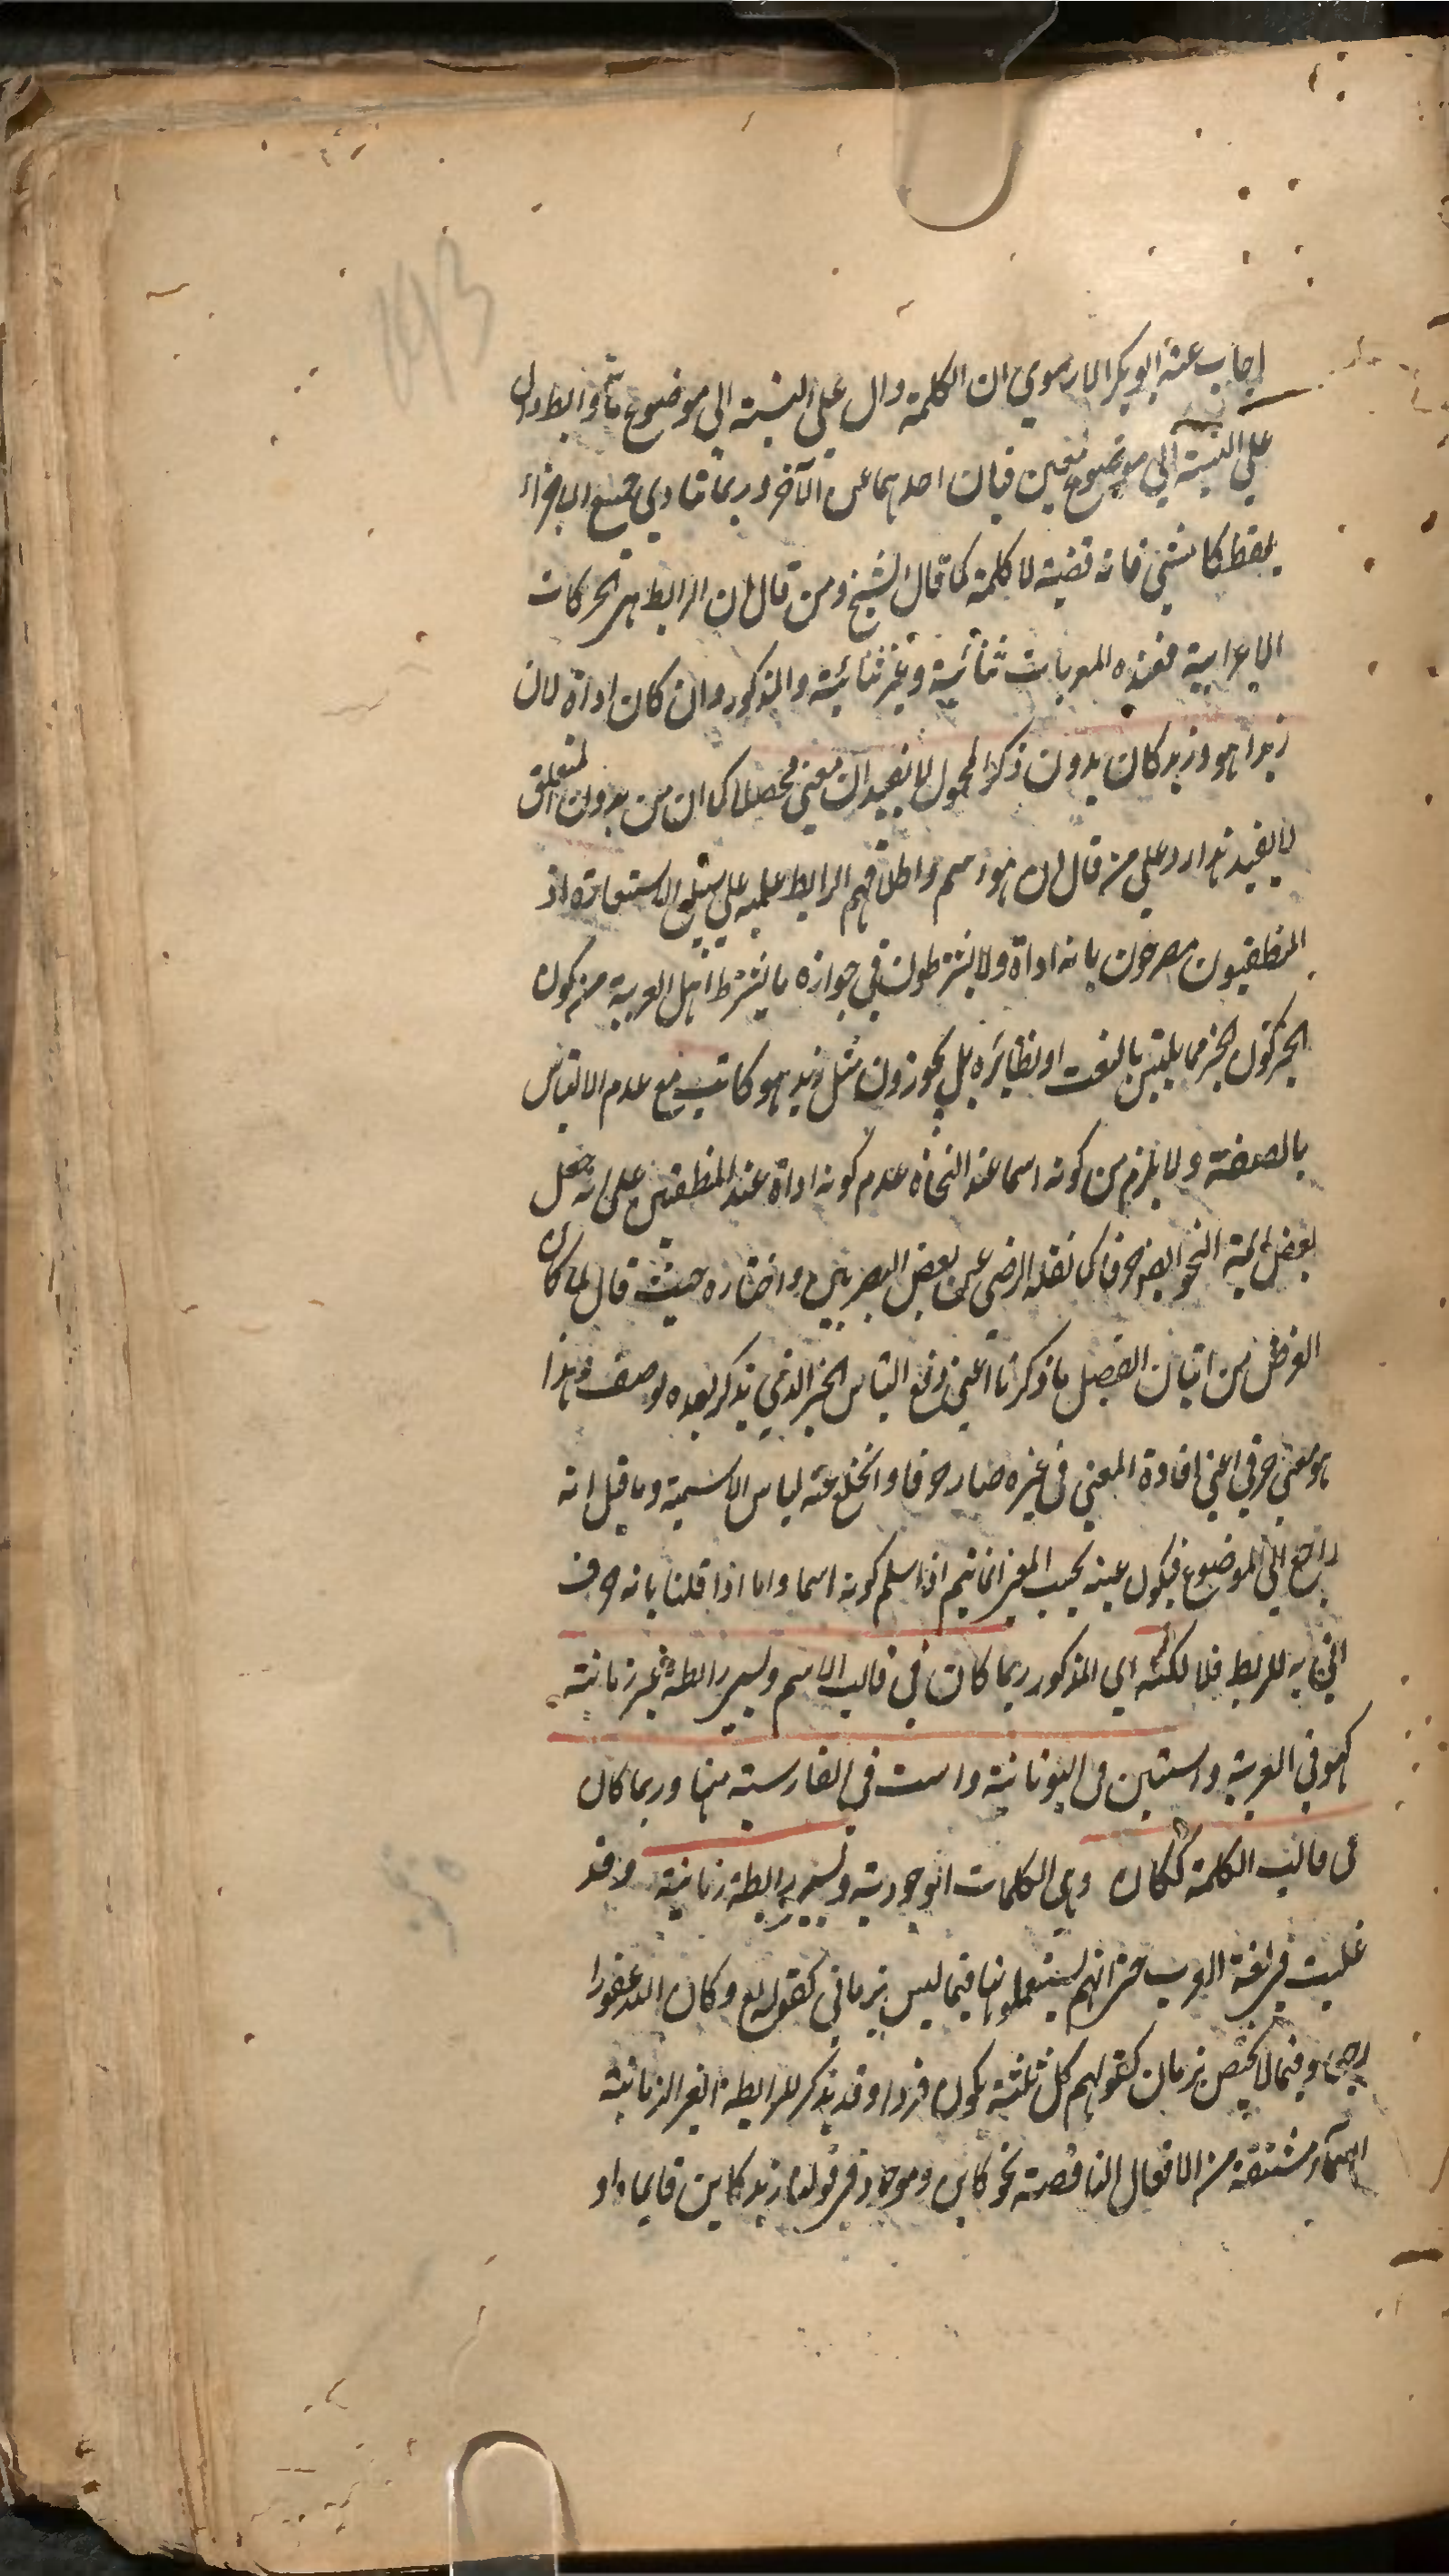 اجاب عنه ابو بكر الارموي ان الكلمة دال علي النسبة الي موضوع ما والرابط دول
علي النسبة الي موضوع معين فبان احدهما عن الآخر وربما تتادي جميع الاجزاء
بلفظ كامشي فانه قضية لا كلمة كما قال الشيخ ومن قال ان الرابط هي الحركات
الاعرابية فعنده المعربات ثنائية وغير ثنائية والمذكور وان كان اداة لان
زيدا هو وزيد كان بدون ذكر المحمول لا يفيدان معني محصلا كما ان من بدون المتعلق
لا يفيد هذا رد علي من قال ان هو اسم واطلاقهم الرابط عليه علي سبيل الاستعارة اذ
المنطقيون مصرحون بانه اداة ولا يشترطون في جوازه ما يشترط اهل العربية من كون
الخبر ككون الخبر مما يلتبس بالنعت او نظائره بل يجوزون مثل زيد هو كاتب مع عدم الالتباس
بالصفة ولا يلزم من كونه اسما عند النحاة عدم كونه اداة عند المنطقيين علي انه جعل
بعض ائمة النحو ايضا حرفا كما نقله الرضي عن بعض البصريين واختاره حيث قال لما كان
الغرض من اتيان الفصل ما ذكرنا اعني دفع التباس الخبر الذي يذكر بعده بوصف وهذا
هو معني حرفي اعني افادة المعني في غيره صار حرفا وانخلع عنه لباس الاسمية وما قيل انه
راجع الي الموضوع فيكون عينه بحسب المعني انما يتم اذا سلم كونه اسما واما اذا قلنا بانه حرف
اتي به للربط فلا لكنه اي المذكور ربما كان في قالب الاسم ويسمي رابطة غير زمانية
كهو في العربية واستين في اليونانية واست في الفارسية منها وربما كان
في قالب الكلمة ككان وهي الكلمات الوجودية ويسمي رابطة زمانية وقد
غلبت في لغة العرب حتي انهم يستعملونها فيما ليس بزماني كقوله تع وكان الله غفورا
رحيما وفيما لا يختص بزمان كقولهم كل ثلثة يكون فردا وقد يذكر للرابطة الغير الزمانية
اسماء مشتقة من الافعال الناقصة نحو كاين وموجود في قولنا زيد كاين قايما واو